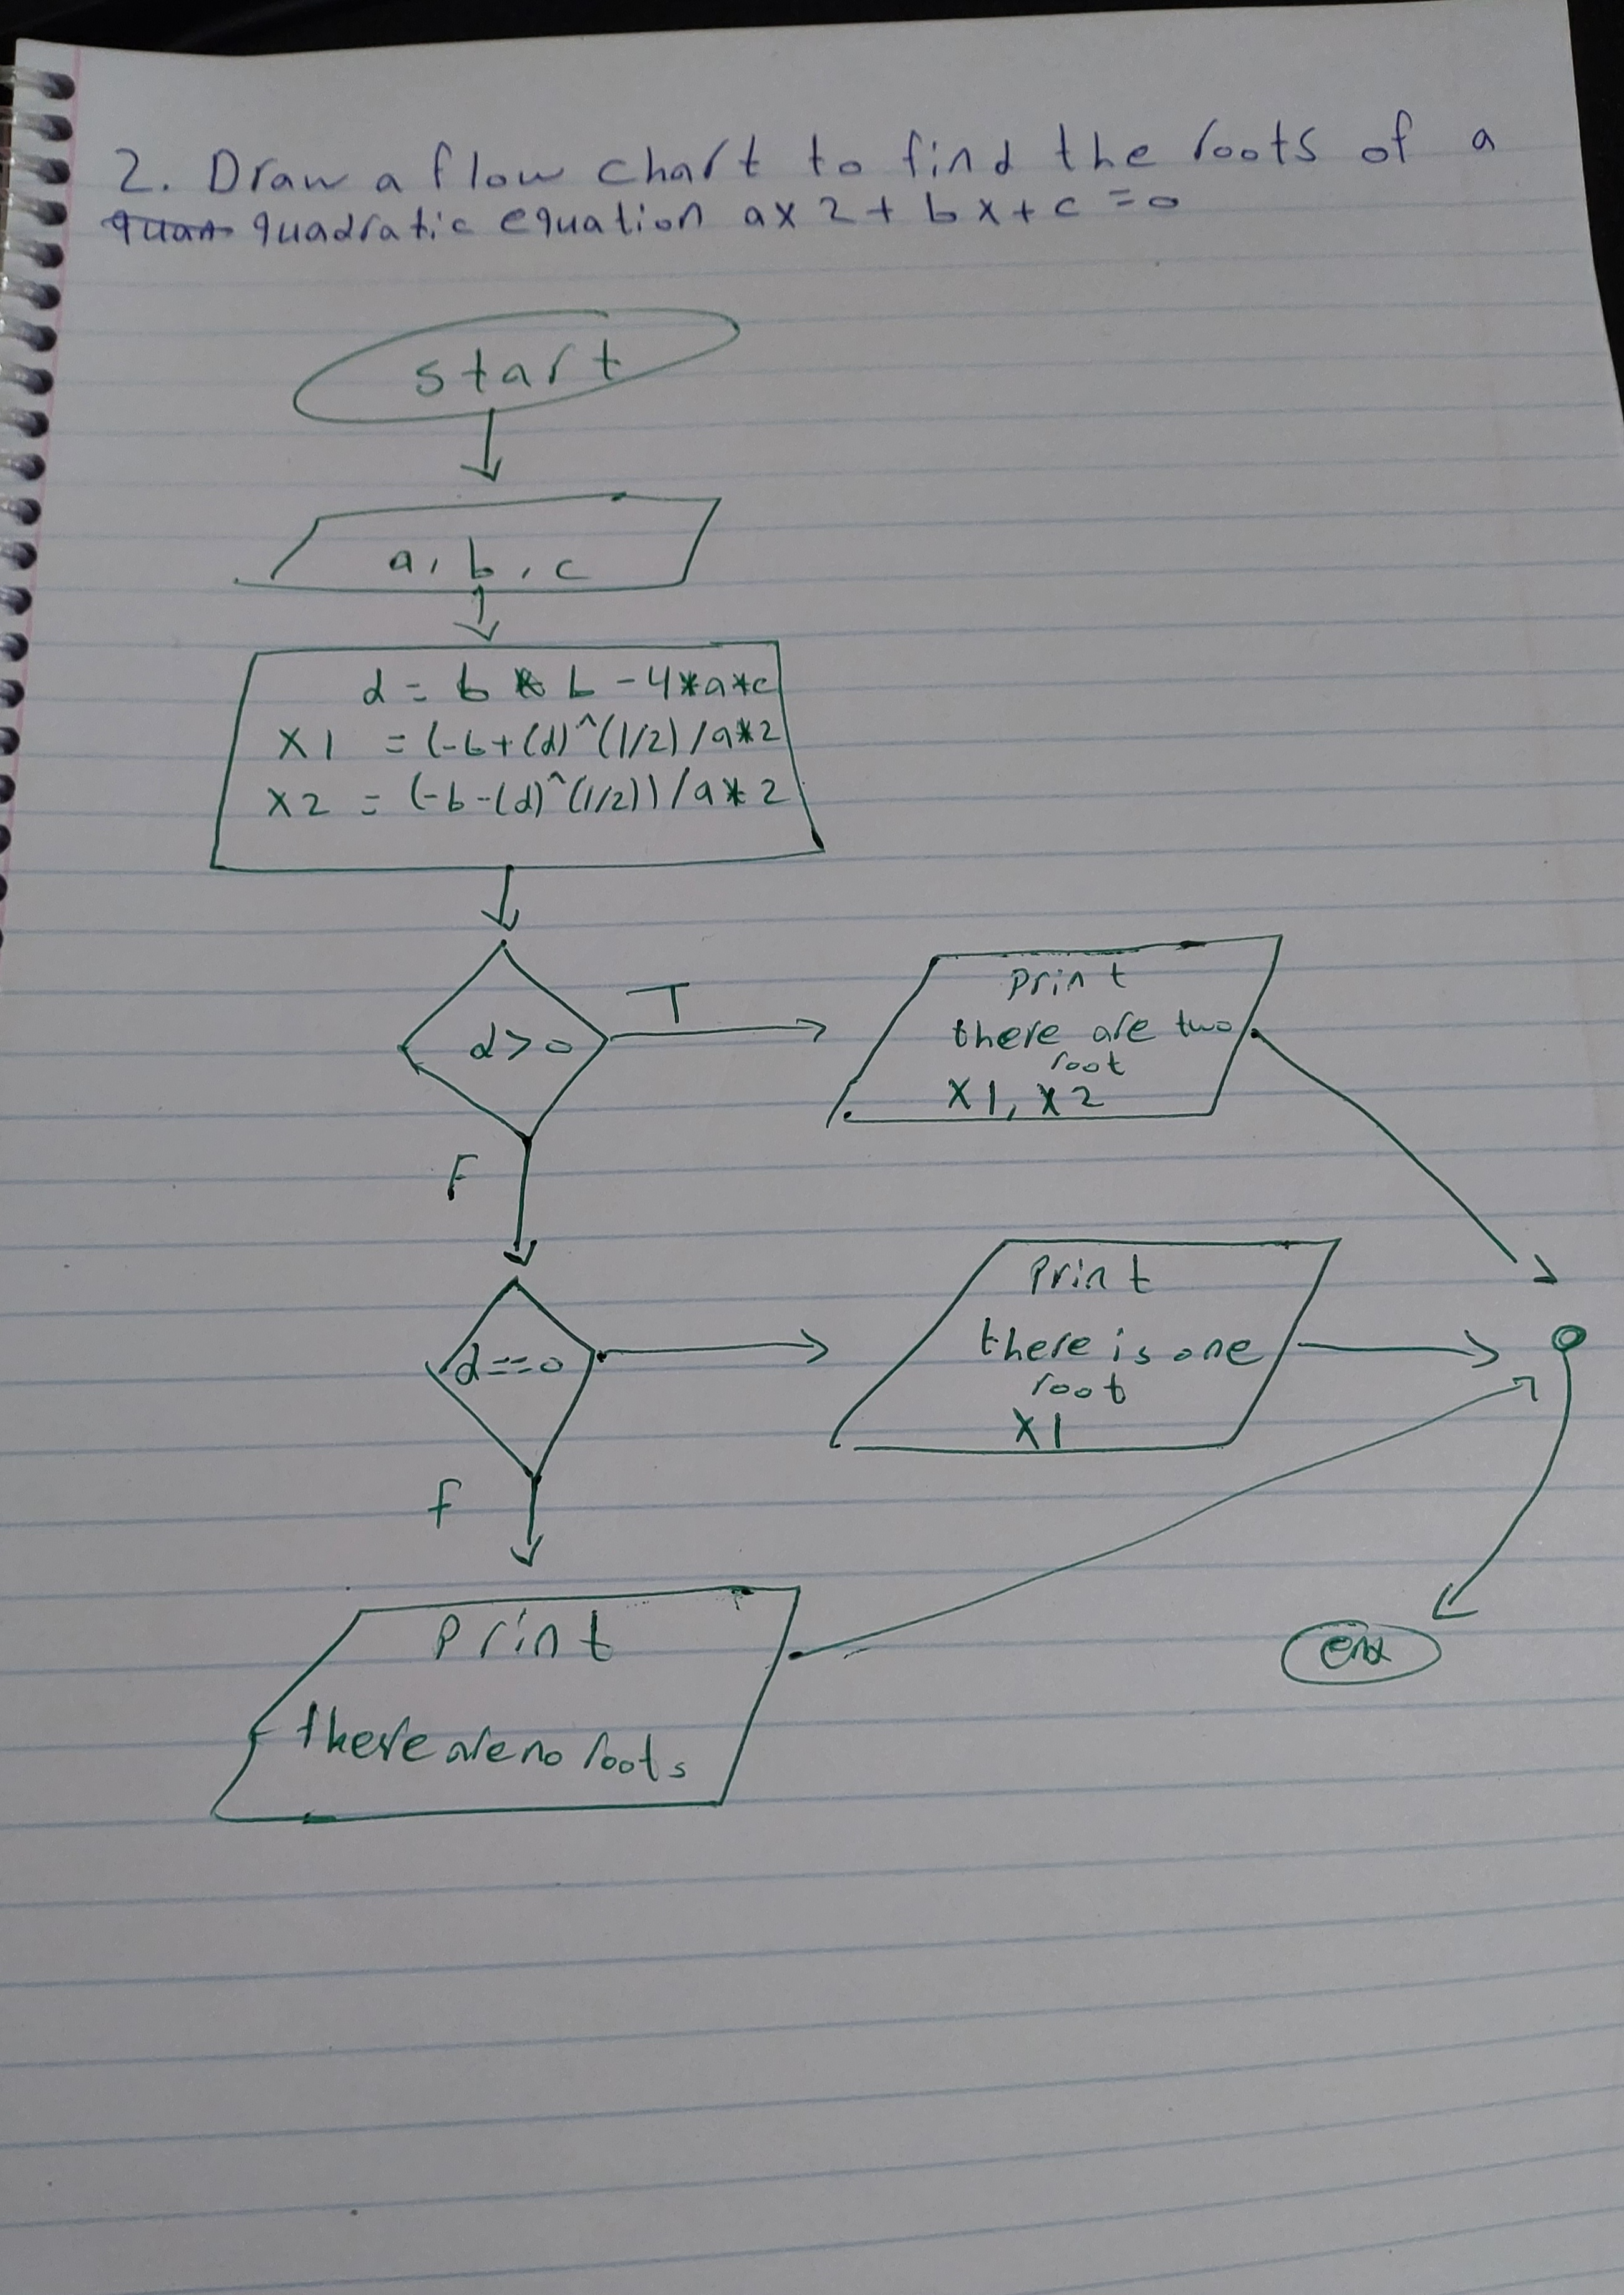 2. Draw a flow chart to find the roots of a
quadratic equation ax2 + bx + c = 0
start
a, b, c
d = b * b - 4*a*c
x1 = (-b+(d)^(1/2)/a*2
x2 = (-b-(d)^(1/2))/a*2
d>0
T
print
there are two
root
x1, x2
F
d==0
print
there is one
root
x1
f
print
there are no roots
end